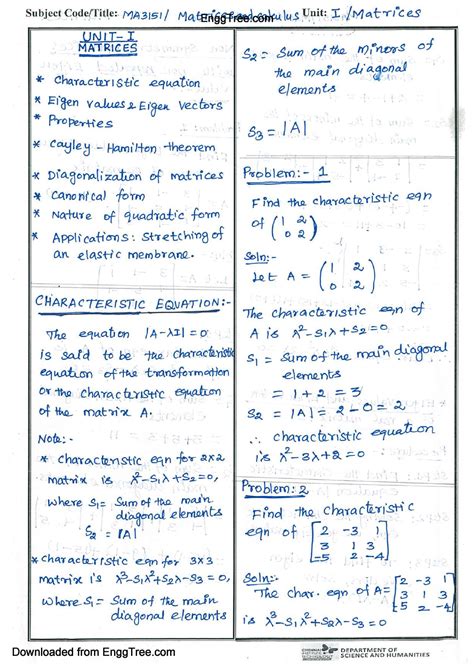 Subject Code/Title: MA3151/ Matrices and calculus Unit: I/Matrices
EnggTree.com
UNIT-I
MATRICES
* Characteristic equation
* Eigen values & Eigen vectors
* Properties
* Cayley-Hamilton-theorem
* Diagonalization of matrices
* Canonical form
* Nature of quadratic form
* Applications: Stretching of
an elastic membrane.
CHARACTERISTIC EQUATION:-
The equation |A-λI|=0
is said to be the characteristic
equation of the transformation
or the characteristic equation
of the matrix A.
Note:-
* Characteristic eqn for 2x2
matrix is λ²-S₁λ+S₂=0,
where S₁= Sum of the main
diagonal elements
S₂ = |A|
* characteristic eqn for 3x3
matrix is λ³-S₁λ²+S₂λ-S₃=0,
where S₁= Sum of the main
diagonal elements
S₂= Sum of the minors of
the main diagonal
elements
S₃ = |A|
Problem:- 1
Find the characteristic eqn
of (1 2
0 2)
Soln:-
Let A = (1 2
0 2)
The characteristic eqn of
A is λ²-S₁λ+S₂=0
S₁ = Sum of the main diagonal
elements
= 1+2 = 3
S₂ = |A| = 2-0 = 2
∴ characteristic equation
is λ²-3λ+2=0
Problem: 2
Find the characteristic
eqn of [2 -3 1
3 1 3
-5 2 -4]
Soln:-
The char. eqn of A = [2 -3 1
3 1 3
-5 2 -4]
is λ³-S₁λ²+S₂λ-S₃=0
Downloaded from EnggTree.com
DEPARTMENT OF
SCIENCE AND HUMANITIES